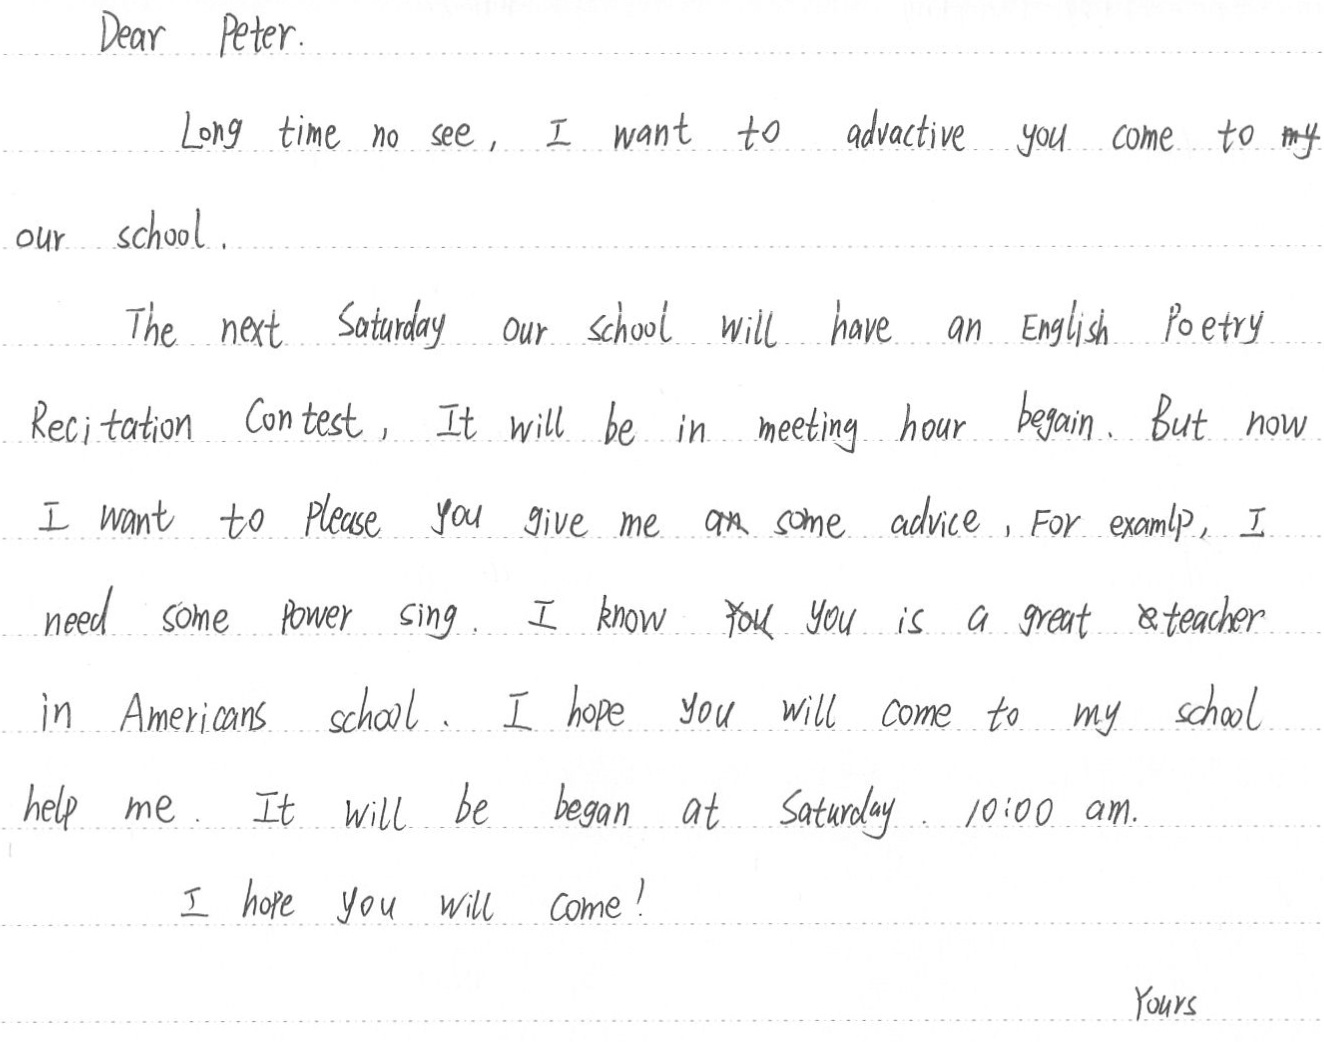 Dear Peter.
Long time no see, I want to advactive you come to my
our school.
The next Saturday our school will have an English Poetry
Recitation Contest, It will be in meeting hour begain. But now
I want to Please you give me an some advice, For examlp, I
need some Power sing. I know you you is a great teacher
in Americans school. I hope you will come to my school
help me. It will be began at Saturday. 10:00 am.
I hope you will come!
Yours